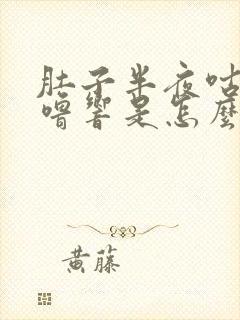 肚子半夜咕
噜響是怎麼
黄藤